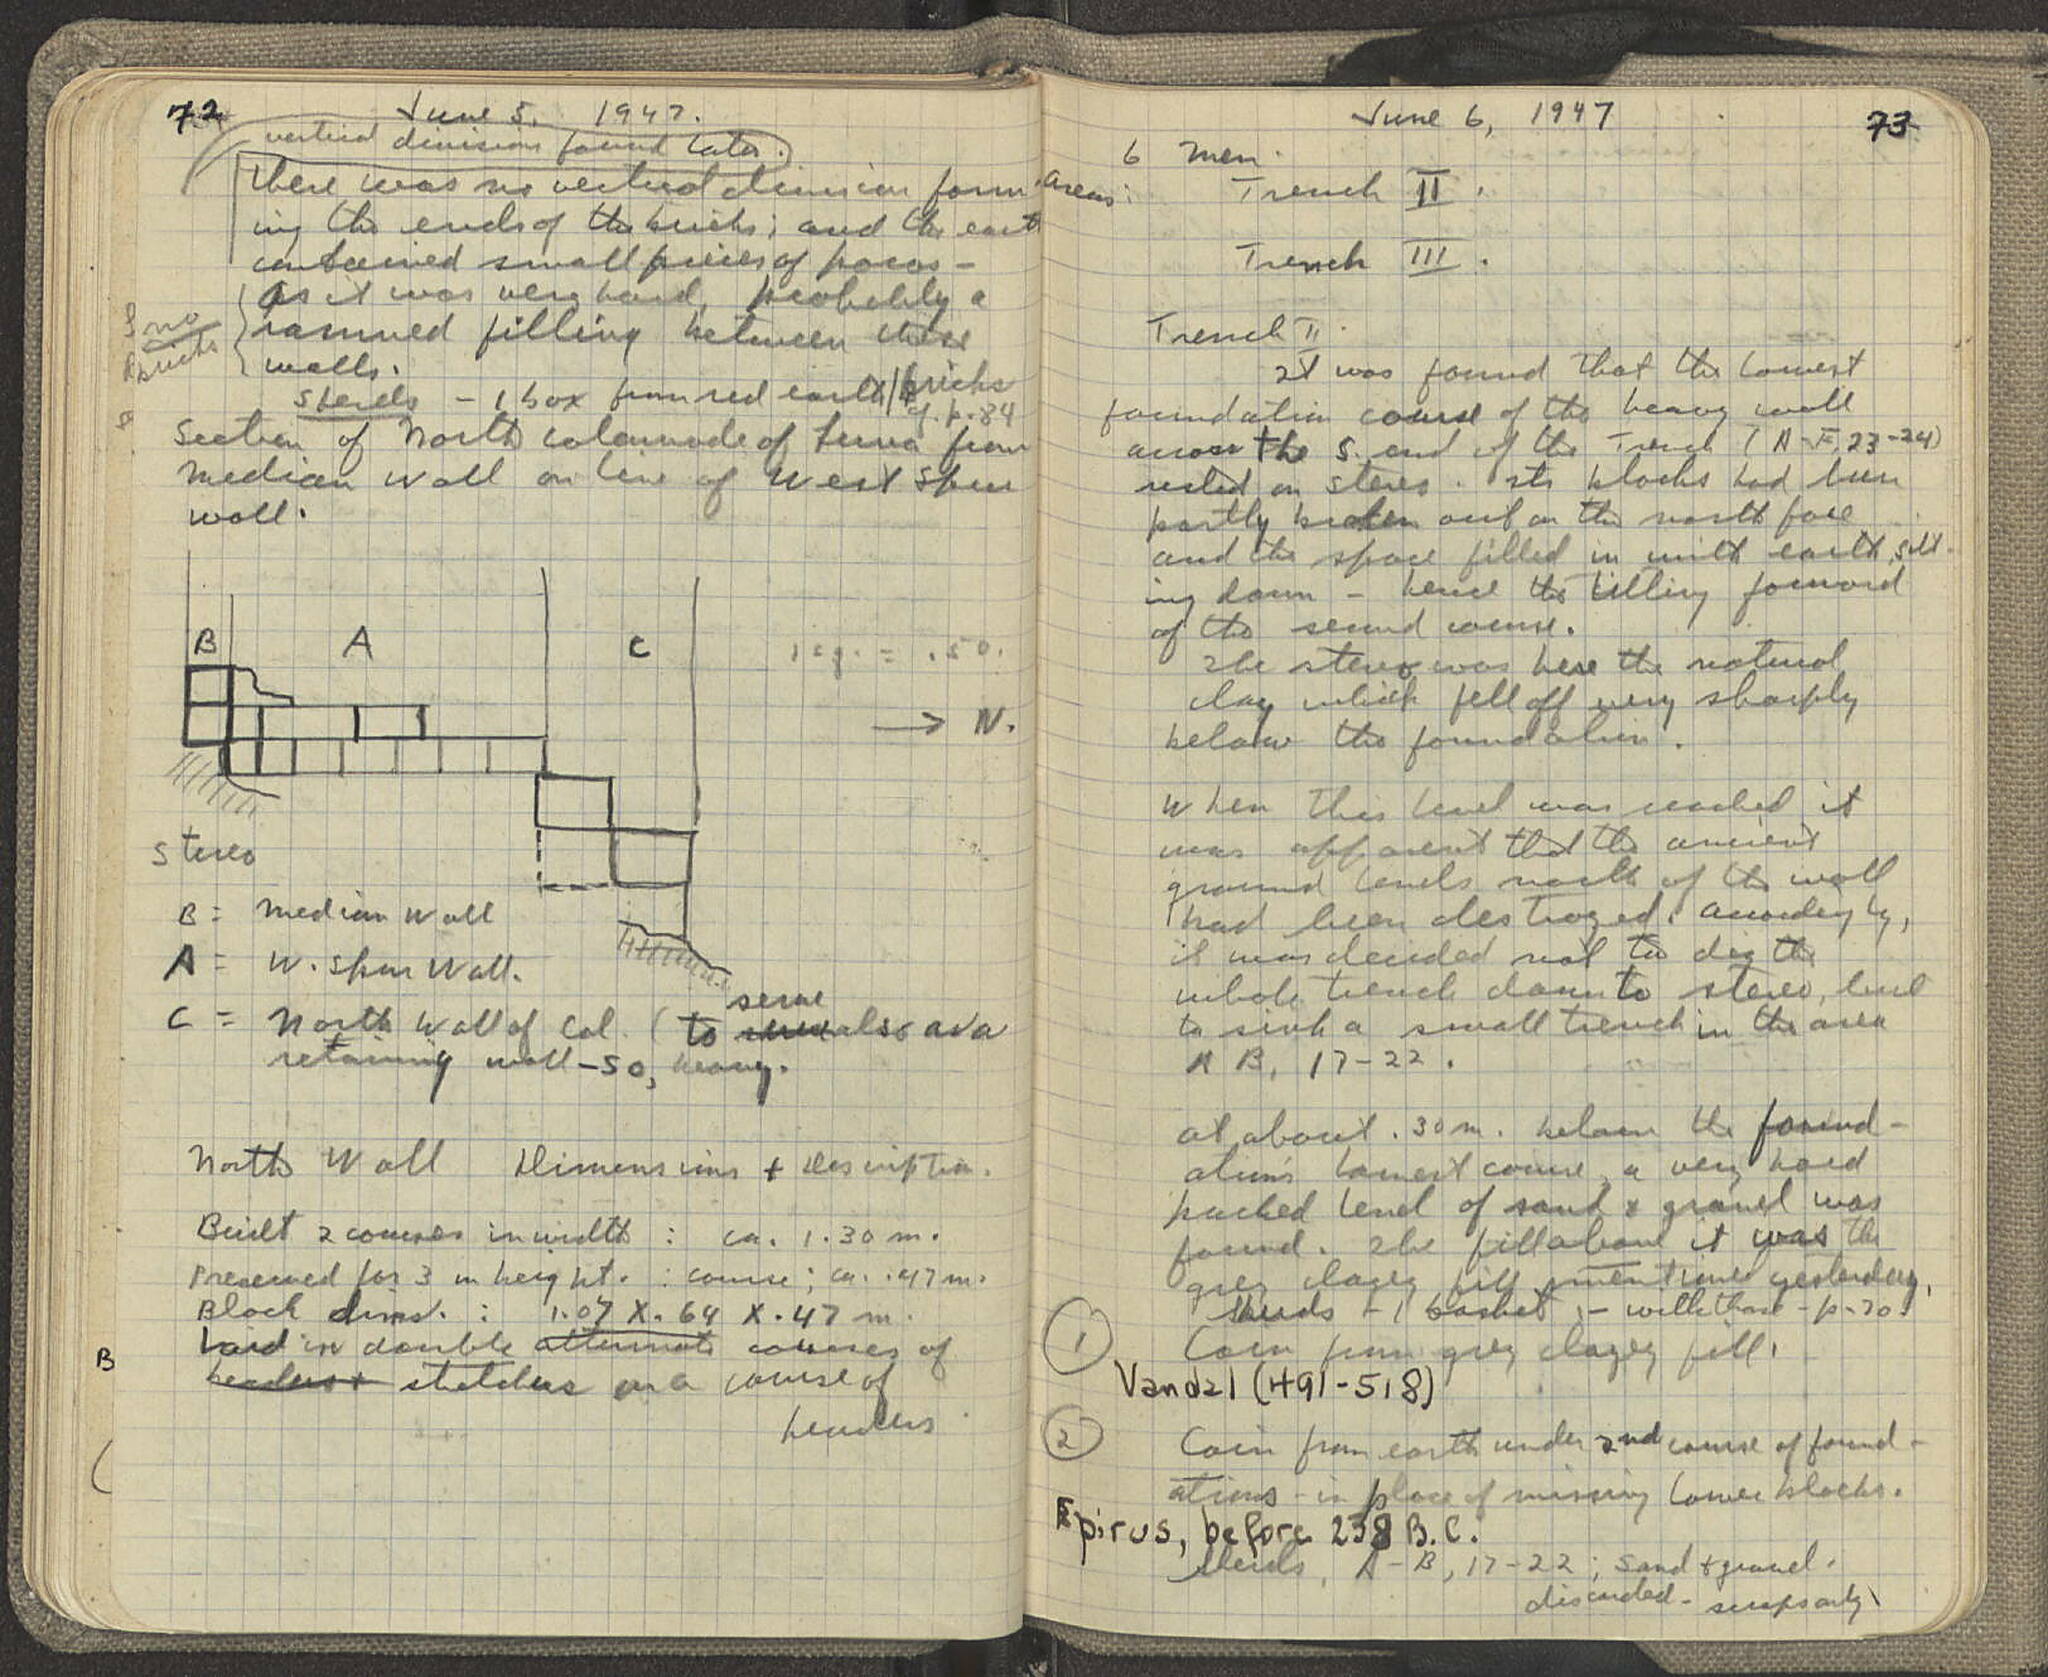 72
June 5, 1947.
vertical division found later.
There was no vertical division form-
ing the ends of the bricks; and the earth
contained small pieces of poros -
As it was very hard, probably a
rammed filling between these
walls.
no
bricks
sherds - 1 box from red earth / bricks
cf. p. 84
Section of North colonnade of from
median wall on line of West Spur
wall.
B
A
C
1 sq. = .50.
→ N.
Stereo
B = Median Wall
A = W. Spur Wall.
serve
C = North Wall of Col. (to also as a
retaining wall - so, heavy.
North Wall Dimensions + Description.
Built 2 courses in width : ca. 1.30 m.
Preserved for 3 in height. : course; ca. .47 m.
Block dims. : 1.07 X .64 X .47 m.
Laid in double alternate courses of
B
headers + stretchers on a course of
headers
June 6, 1947
73
6 men.
Areas: Trench II.
Trench III.
Trench II.
It was found that the lowest
foundation course of the heavy wall
across the S. end of the Trench (A-F, 23-24)
rested on stereo. Its blocks had been
partly broken out on the north face
and the space filled in with earth, silt-
ing down - hence the tilting forward
of the second course.
The stereo was here the natural
clay which fell off very sharply
below the foundation.
When this level was reached it
was apparent that the ancient
ground levels north of the wall
had been destroyed. Accordingly,
it was decided not to dig the
whole trench down to stereo, but
to sink a small trench in the area
A B, 17-22.
At about .30 m. below the found-
ation's lowest course, a very hard
packed level of sand & gravel was
found. The fill above it was the
grey clayey fill mentioned yesterday.
sherds - 1 basket - with those - p. 70.
1 Coin from grey clayey fill.
Vandal (491-518)
2 Coin from earth under 2nd course of found-
ations - in place of missing lower blocks.
Epirus, before 238 B.C.
sherds, A-B, 17-22; sand & gravel.
discarded - scraps only